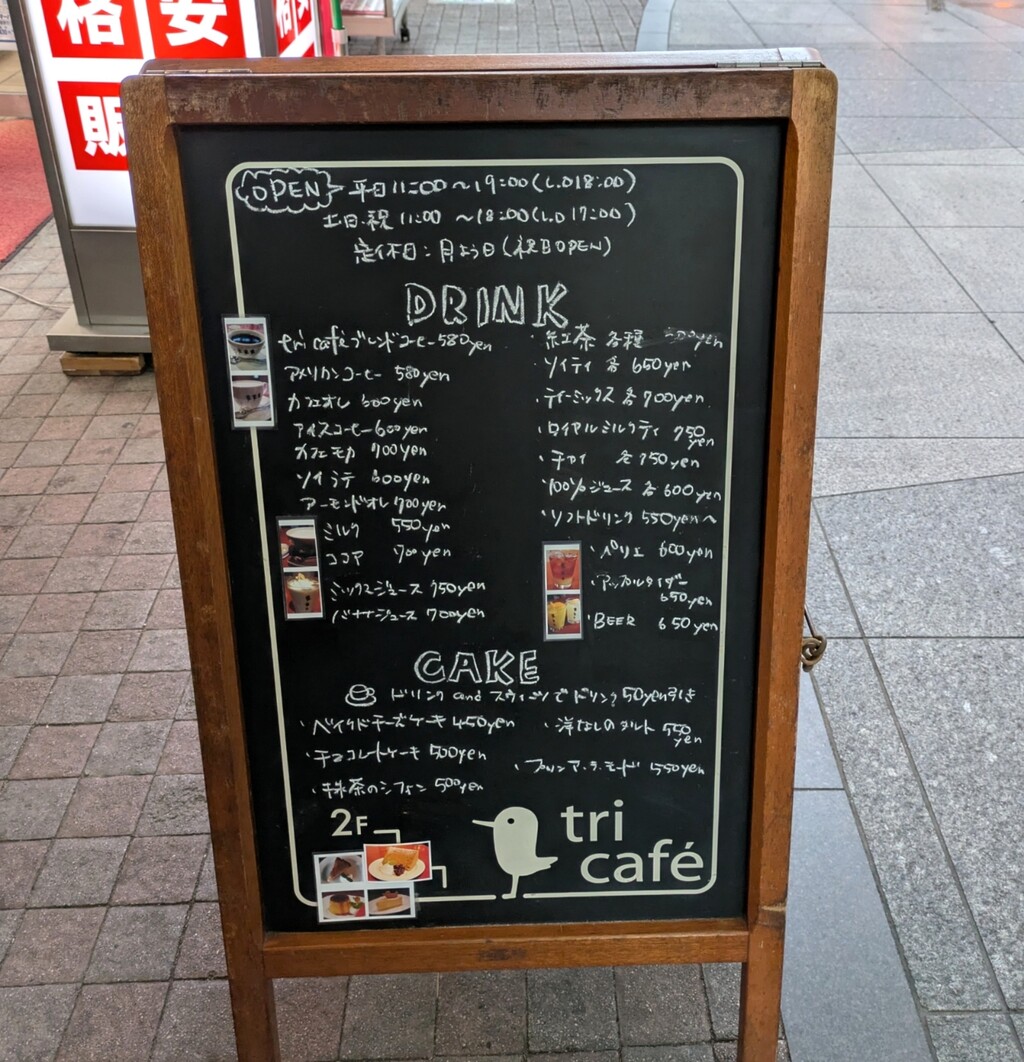 格安
販
OPEN 平日 11:00～19:00(L.O 18:00)
土日・祝 11:00 ～18:00(L.O 17:00)
定休日:月よう日(祝日OPEN)
DRINK
tri caféブレンドコーヒー 580yen
アメリカンコーヒー 580yen
カフェオレ 600yen
アイスコーヒー 600yen
カフェモカ 700yen
ソイラテ 600yen
アーモンドオレ 700yen
ミルク 550yen
ココア 700yen
ミックスジュース 750yen
バナナジュース 700yen
・紅茶 各種 yen
・ソイティ 各 650yen
・ティーミックス 各 700yen
・ロイヤルミルクティ 750yen
・チャイ 各 750yen
・100%ジュース 各 600yen
・ソフトドリンク 550yen～
・ペリエ 600yen
・アップルタイザー 650yen
・BEER 650yen
CAKE
ドリンク and スウィーツで ドリンク 50yen引き
・ベイクドチーズケーキ 450yen
・チョコレートケーキ 500yen
・抹茶のシフォン 500yen
・洋なしのタルト 550yen
・プリンア・ラ・モード 550yen
2F
tri
café